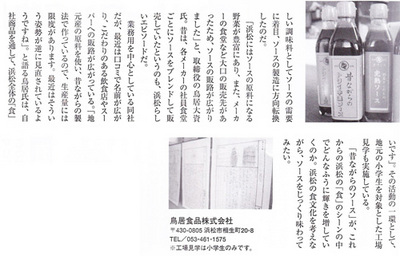 しい調味料としてソースの需要
に着目、ソースの製造に方向転換
したのだ。
「浜松にはソースの原料になる
野菜が豊富にあり、また、メーカ
ーの食堂など大口の販売先があ
ったため、ソースの販路が広がり
ました」と、取締役の鳥居大資
氏。昔は、各メーカーの社員食堂
ごとにソースをブレンドして販
売していたというのも、浜松らし
いエピソードだ。
業務用を中心としている同社
だが、最近は口コミで名前が広が
り、こだわりのある飲食店やスー
パーへの販路が広がっている。「地
元の原料を使い、昔ながらの製
法で作っているので、生産量には
限度があります。最近はそうい
う姿勢が逆に見直されているよ
うですね」と語る鳥居氏は、自
社商品を通して、浜松全体の「食」
いです」。その活動の一環として、
地元の小学生を対象とした工場
見学も実施している。
「昔ながらのソース」が、これ
からの浜松の「食」のシーンの中
でどんなふうに輝きを増してい
くのか。浜松の食文化を考えな
がら、ソースをじっくり味わって
みたい。
鳥居食品株式会社
〒430-0805 浜松市相生町20-8
TEL/053-461-1575
※工場見学は小学生のみです。